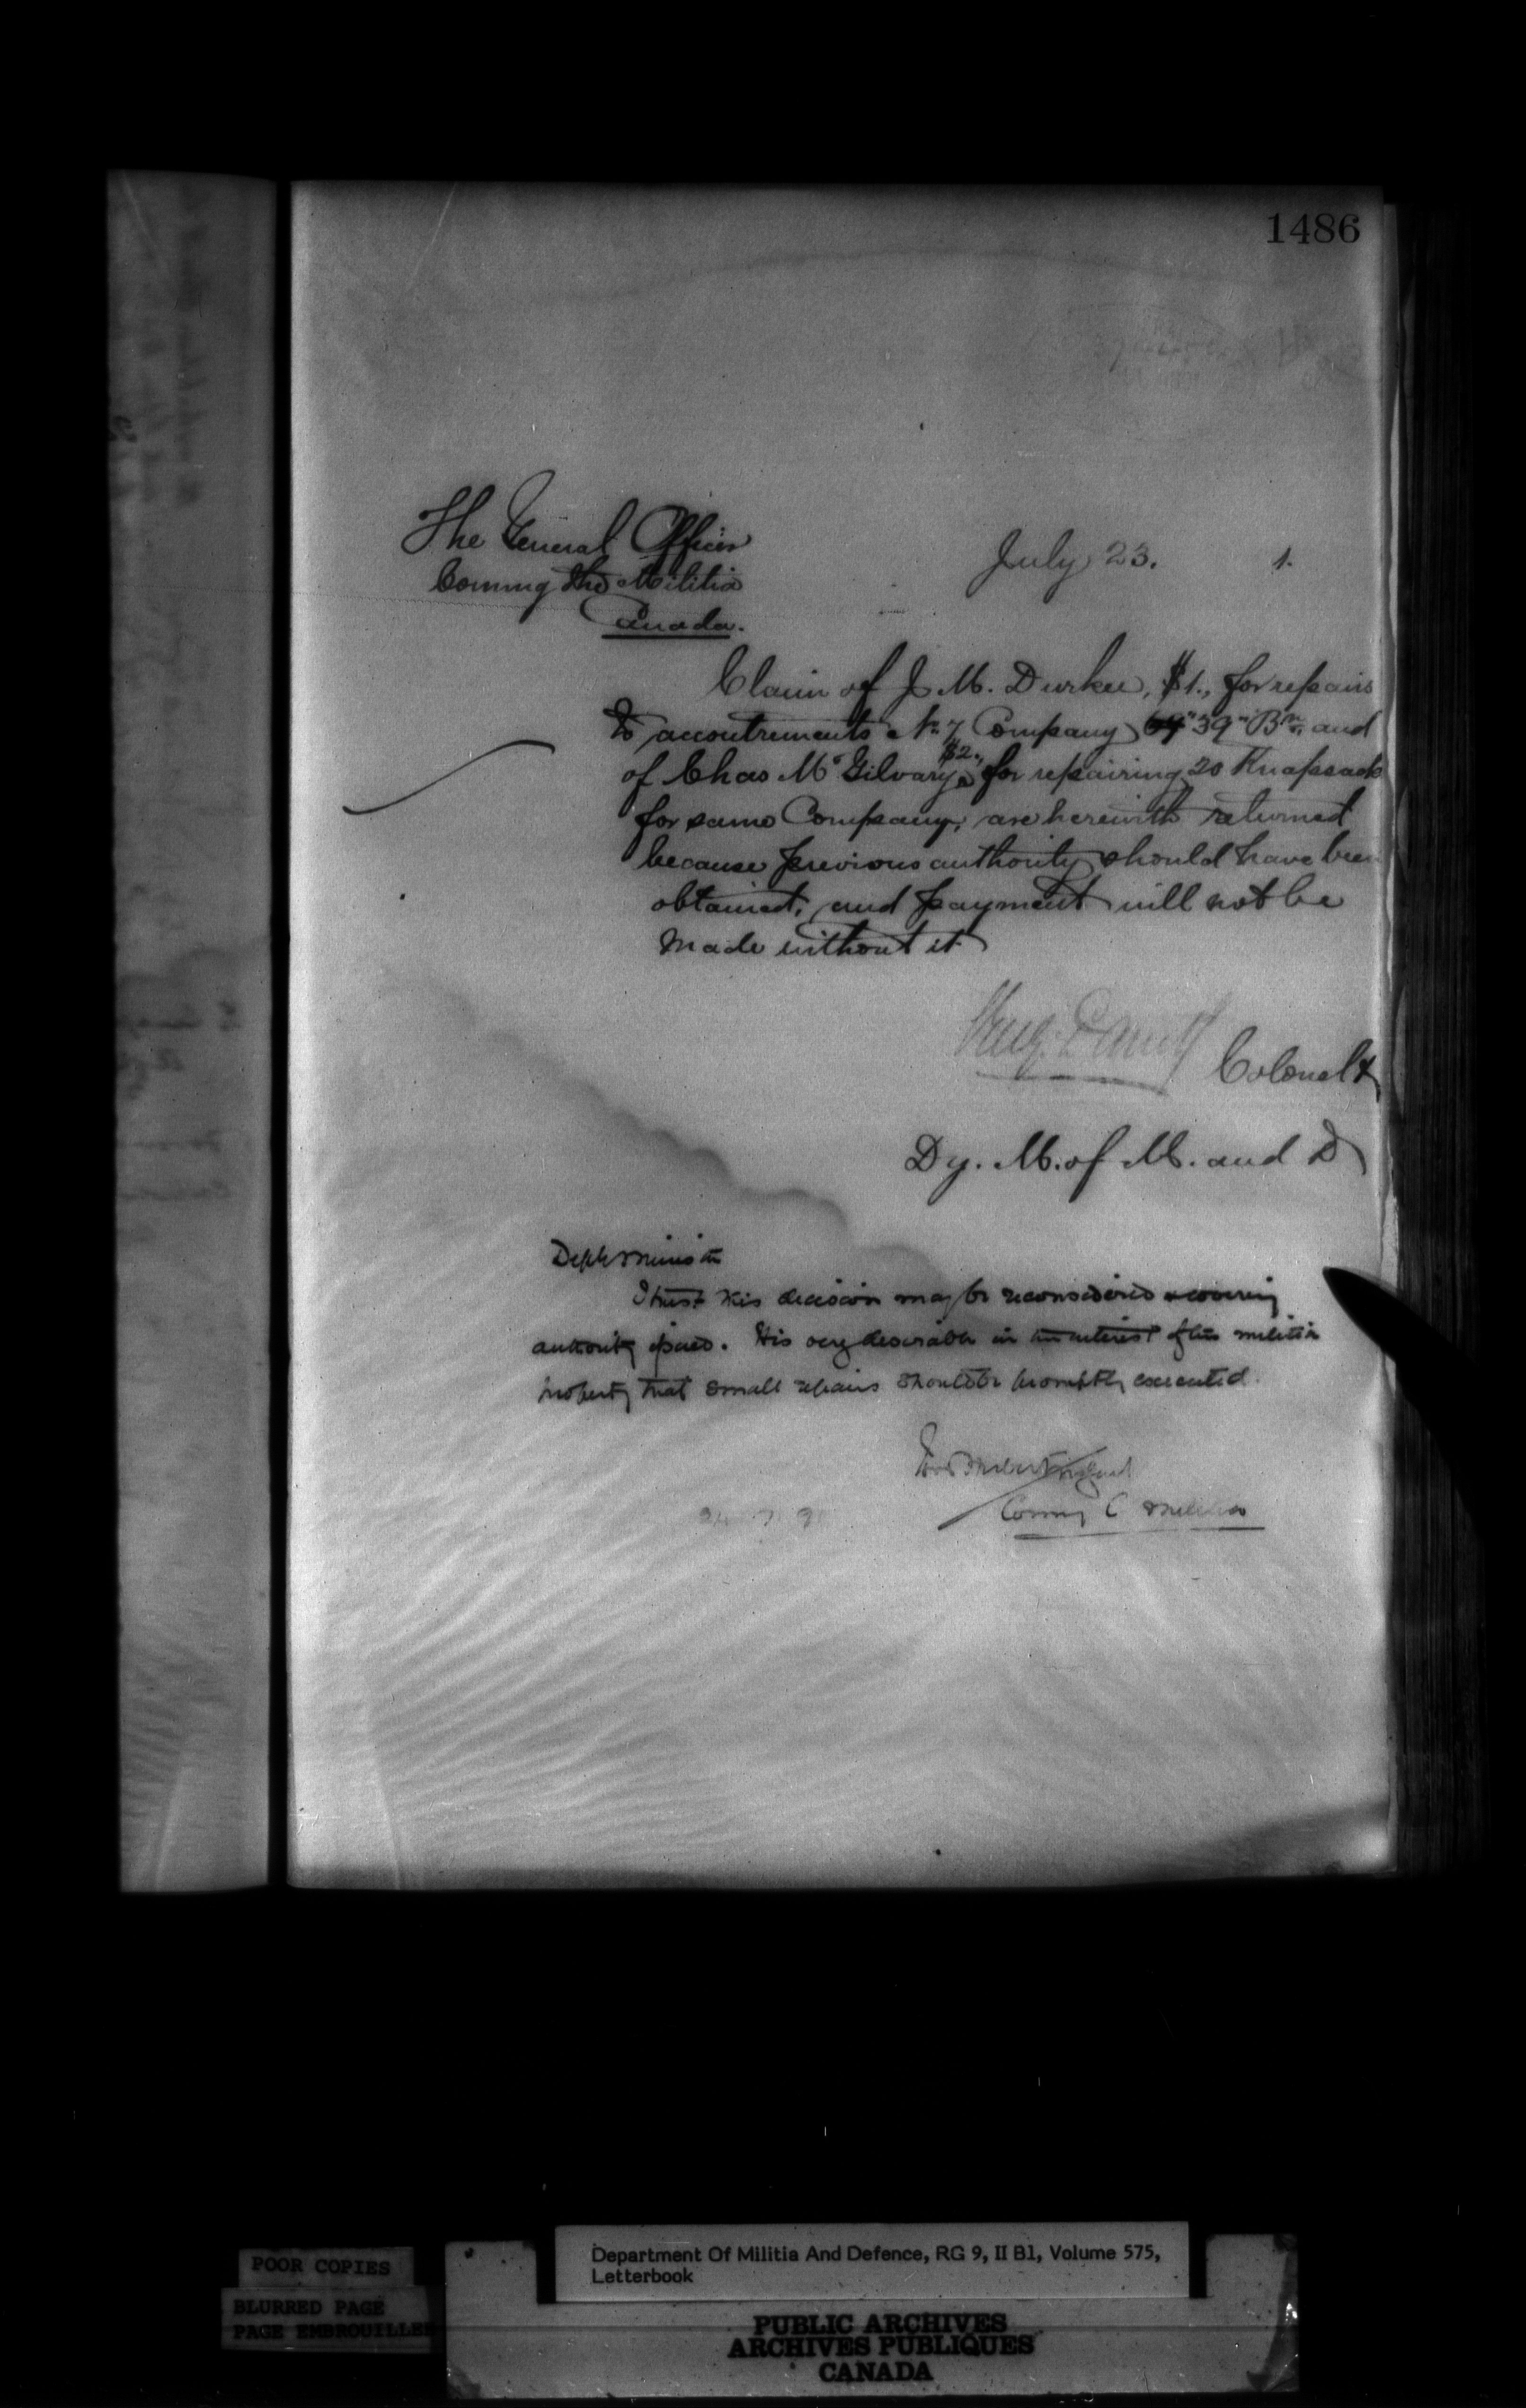 1486
The General Officer
Commg the Militia
Canada.
July 23. 1.
Claim of J. M. Durkee, $1., for repairs
to accoutrements No. 7 Company 69" 39" Bn. and
of Chas McGilvary, $2., for repairing 20 Knapsacks
for same Company, are herewith returned
because previous authority should have been
obtained, and payment will not be
made without it
Colonel &
Dy. M. of M. and D
Depty Minister
I trust this decision may be reconsidered & covering
authority issued. It is very desirable in the interest of the militia
property that small repairs should be promptly executed.
Commg C Militia
24 7 9
POOR COPIES
BLURRED PAGE
PAGE EMBROUILLEE
Department Of Militia And Defence, RG 9, II B1, Volume 575,
Letterbook
PUBLIC ARCHIVES
ARCHIVES PUBLIQUES
CANADA